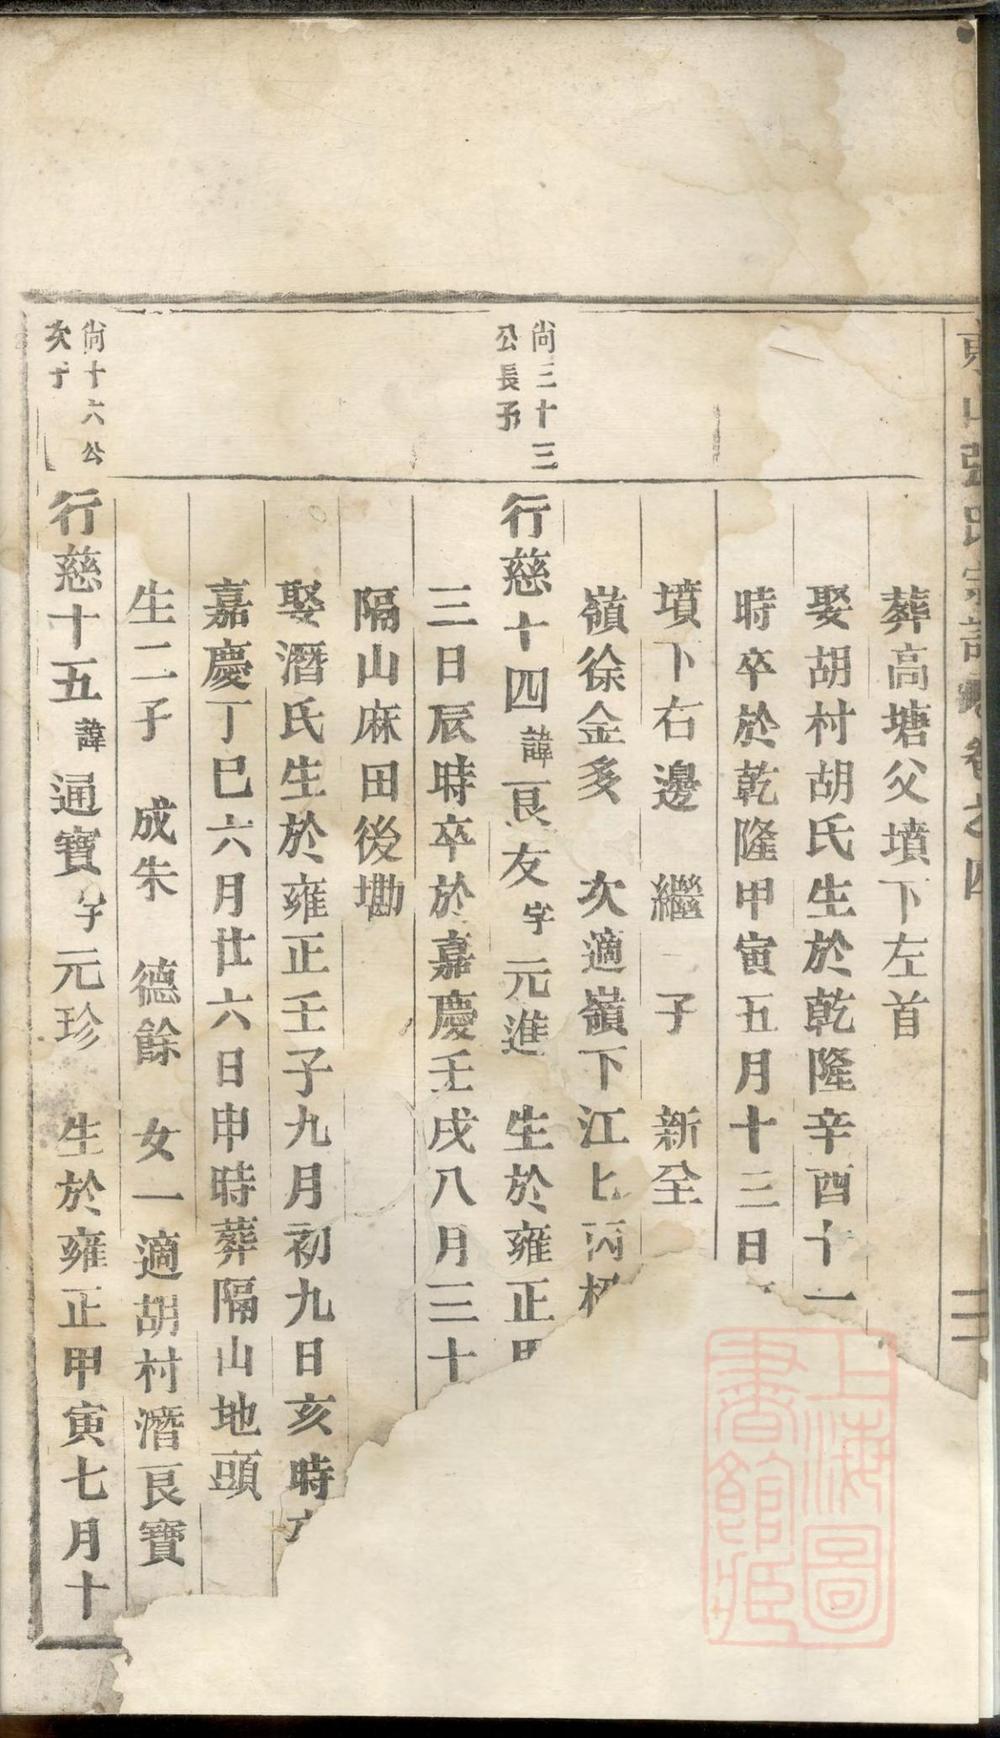 東山張氏宗譜 卷之四
葬高塘父墳下左首
娶胡村胡氏生於乾隆辛酉十一
時卒於乾隆甲寅五月十三日
墳下右邊 繼 子 新全
嶺徐金多 次適嶺下江
尚三十三公長子
行慈十四諱良友字元進 生於雍正甲
三日辰時卒於嘉慶壬戌八月三十
隔山麻田後墈
娶潛氏生於雍正壬子九月初九日亥時
嘉慶丁巳六月廿六日申時葬隔山地頭
生二子 成朱 德餘 女一適胡村潛良寶
尚十六公次子
行慈十五諱通寶字元珍 生於雍正甲寅七月十
上海圖書館藏